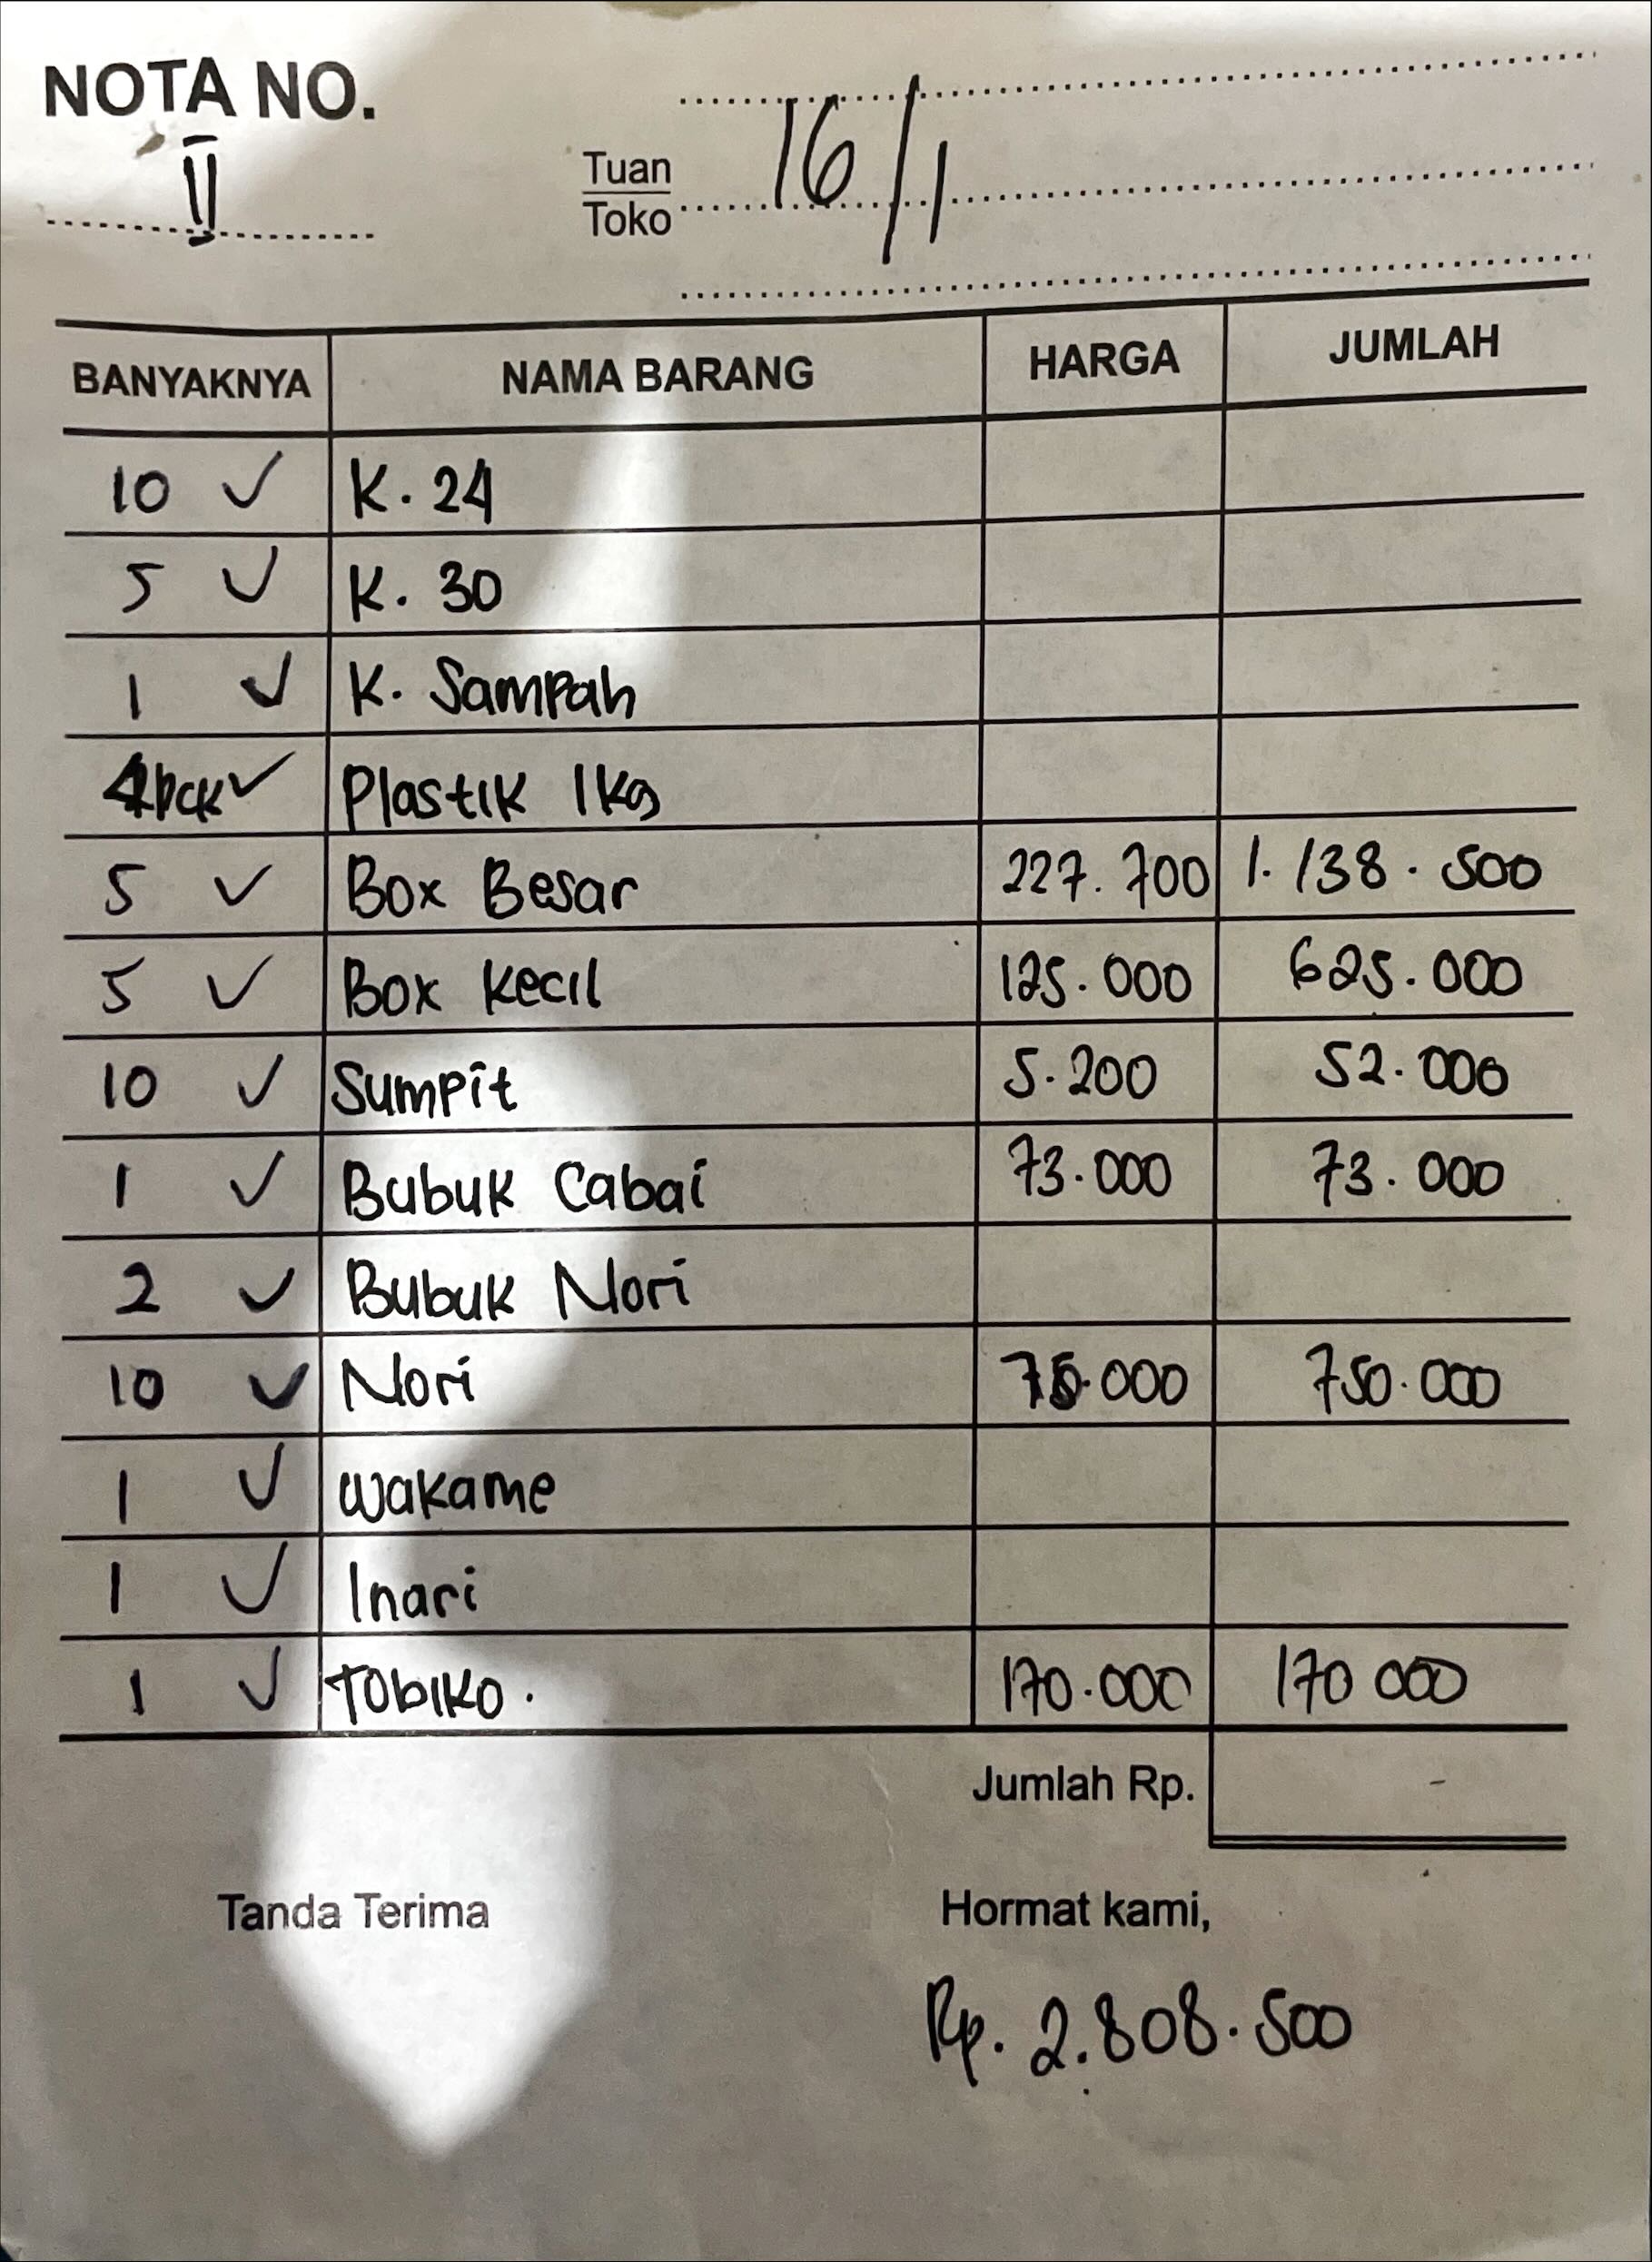 NOTA NO.
II
16/1
Tuan
Toko
BANYAKNYA NAMA BARANG HARGA JUMLAH
10 ✓ K. 24
5 ✓ K. 30
1 ✓ K. Sampah
4 pck ✓ Plastik 1 kg
5 ✓ Box Besar 227.700 1.138.500
5 ✓ Box Kecil 125.000 625.000
10 ✓ Sumpit 5.200 52.000
1 ✓ Bubuk Cabai 73.000 73.000
2 ✓ Bubuk Nori
10 ✓ Nori 75.000 750.000
1 ✓ Wakame
1 ✓ Inari
1 ✓ Tobiko. 170.000 170 000
Jumlah Rp. -
Tanda Terima Hormat kami,
Rp. 2.808.500